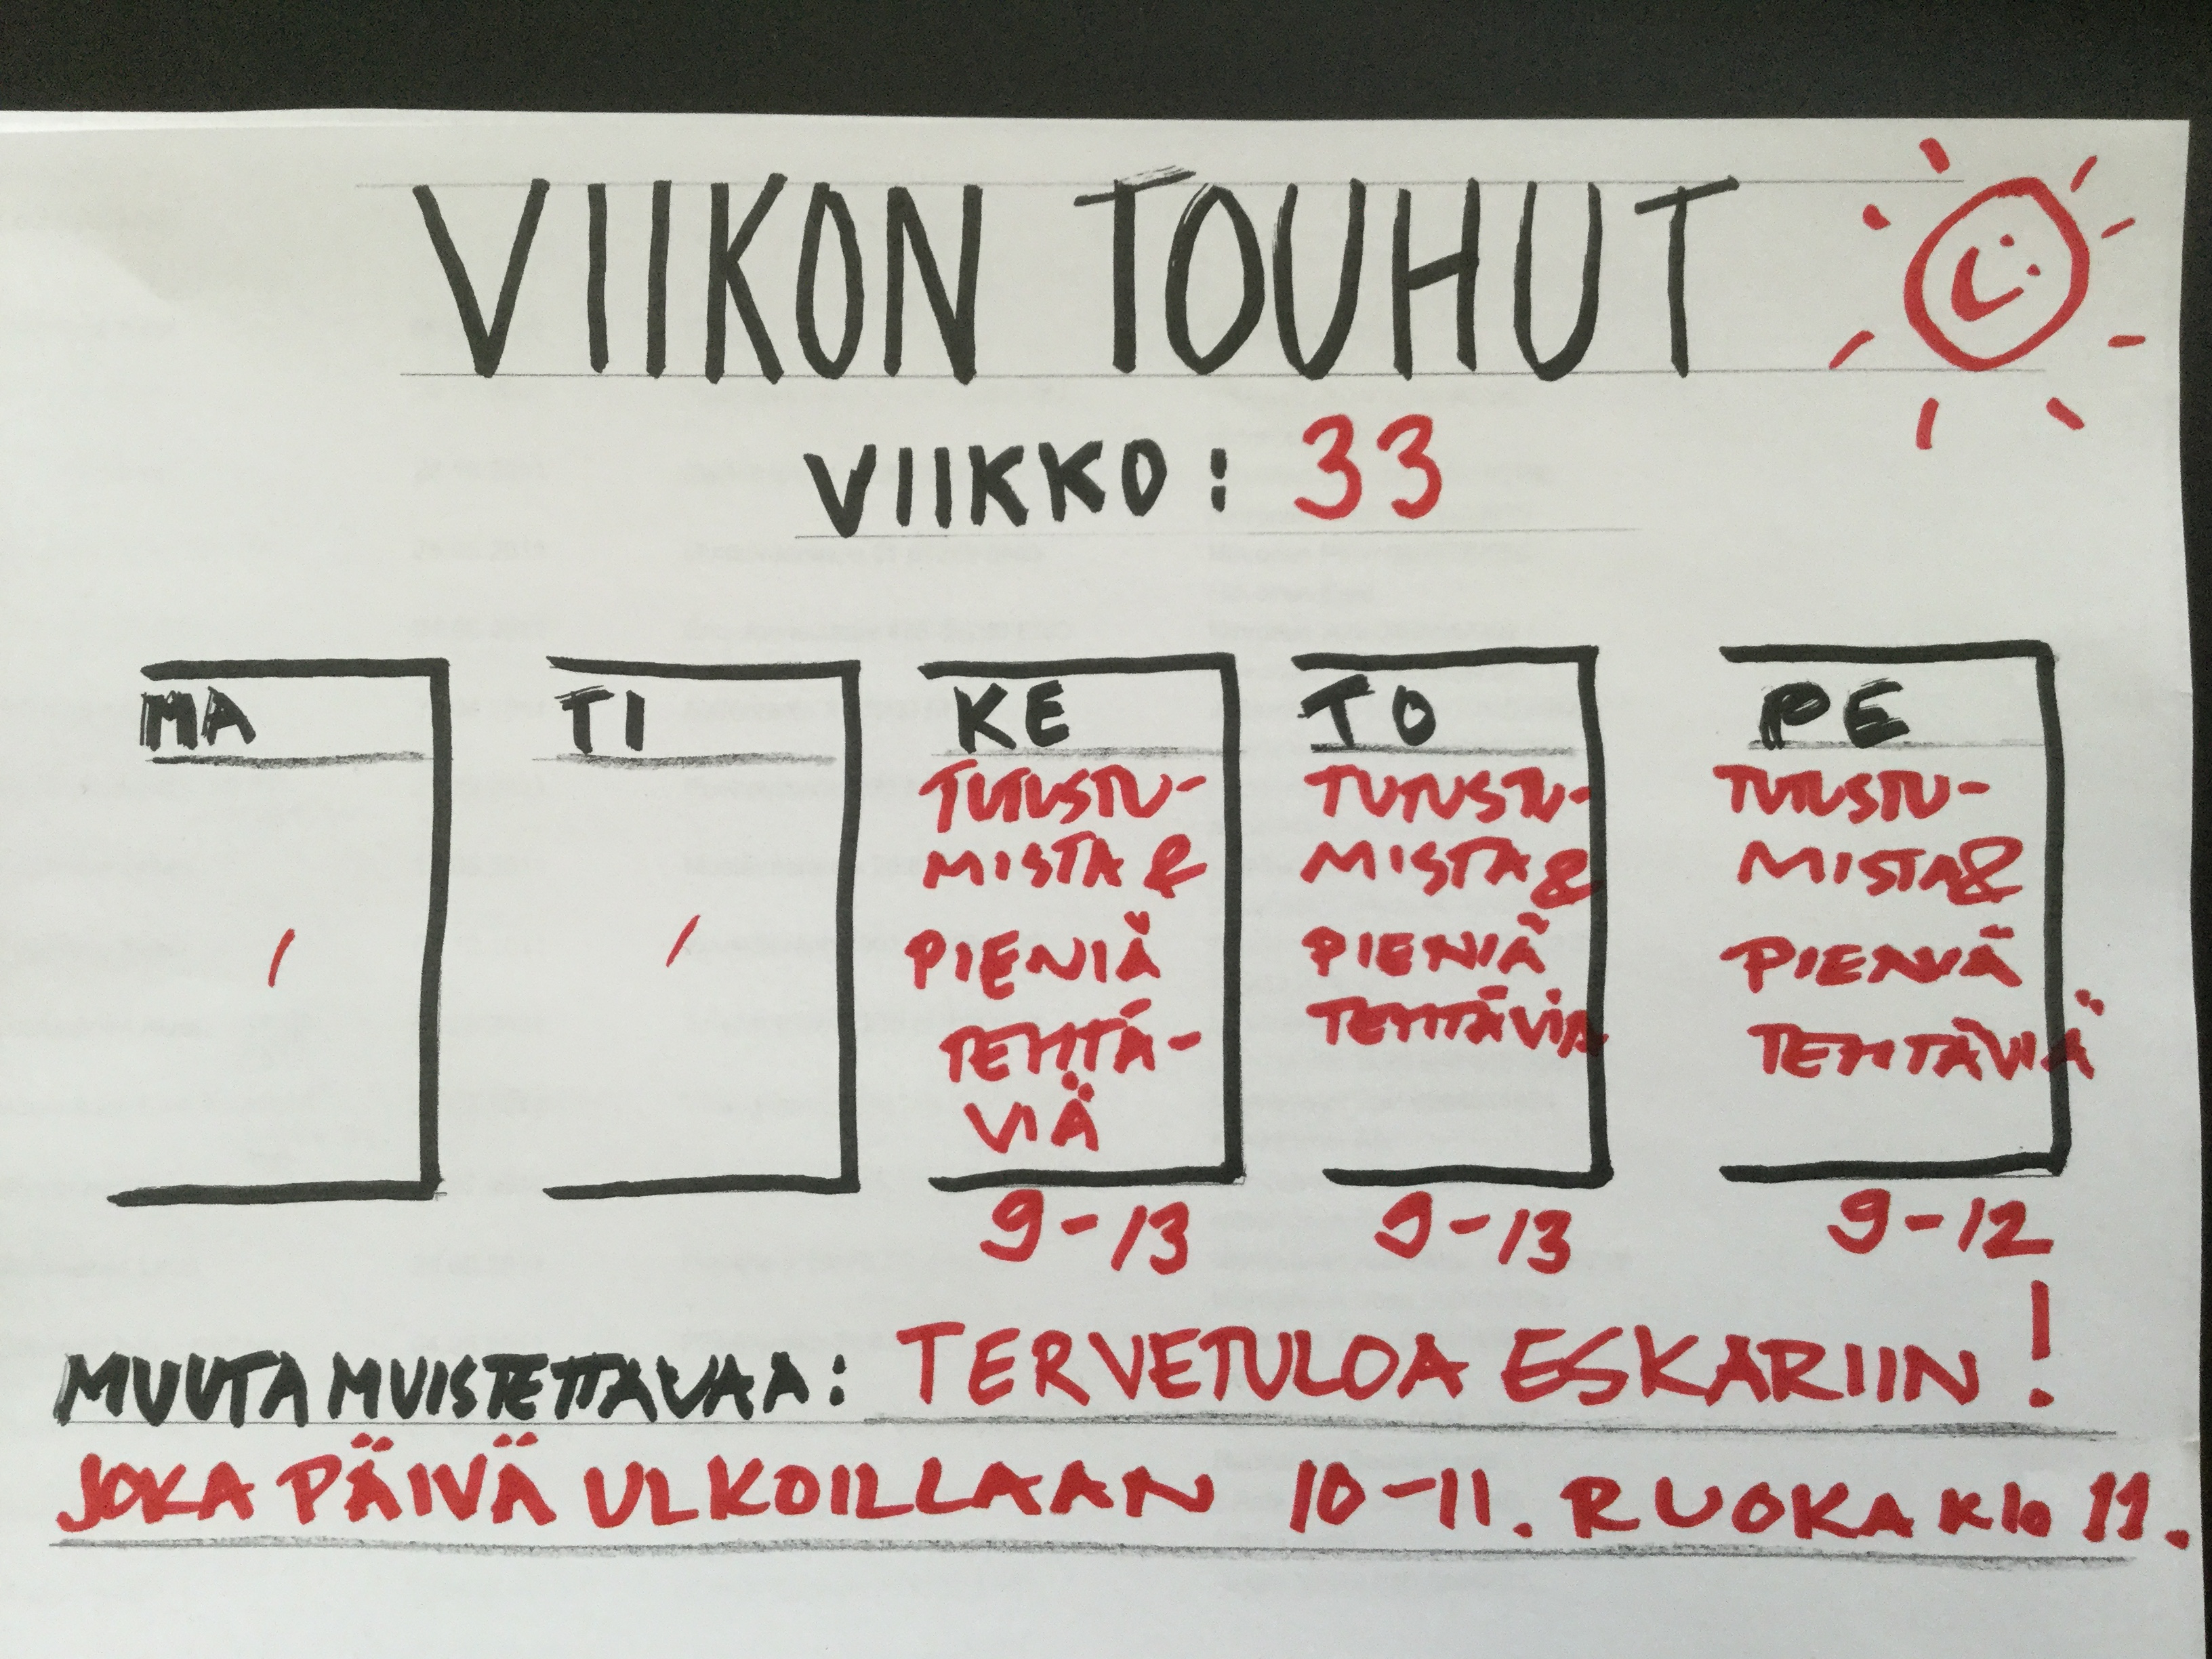 VIIKON TOUHUT
VIIKKO: 33
MA
/
TI
/
KE
TUTUSTU-
MISTA &
PIENIÄ
TEHTÄ-
VIÄ
9-13
TO
TUTUSTU-
MISTA &
PIENIÄ
TEHTÄVIÄ
9-13
PE
TUTUSTU-
MISTA &
PIENIÄ
TEHTÄVIÄ
9-12
MUUTA MUISTETTAVAA: TERVETULOA ESKARIIN!
JOKA PÄIVÄ ULKOILLAAN 10-11. RUOKA klo 11.